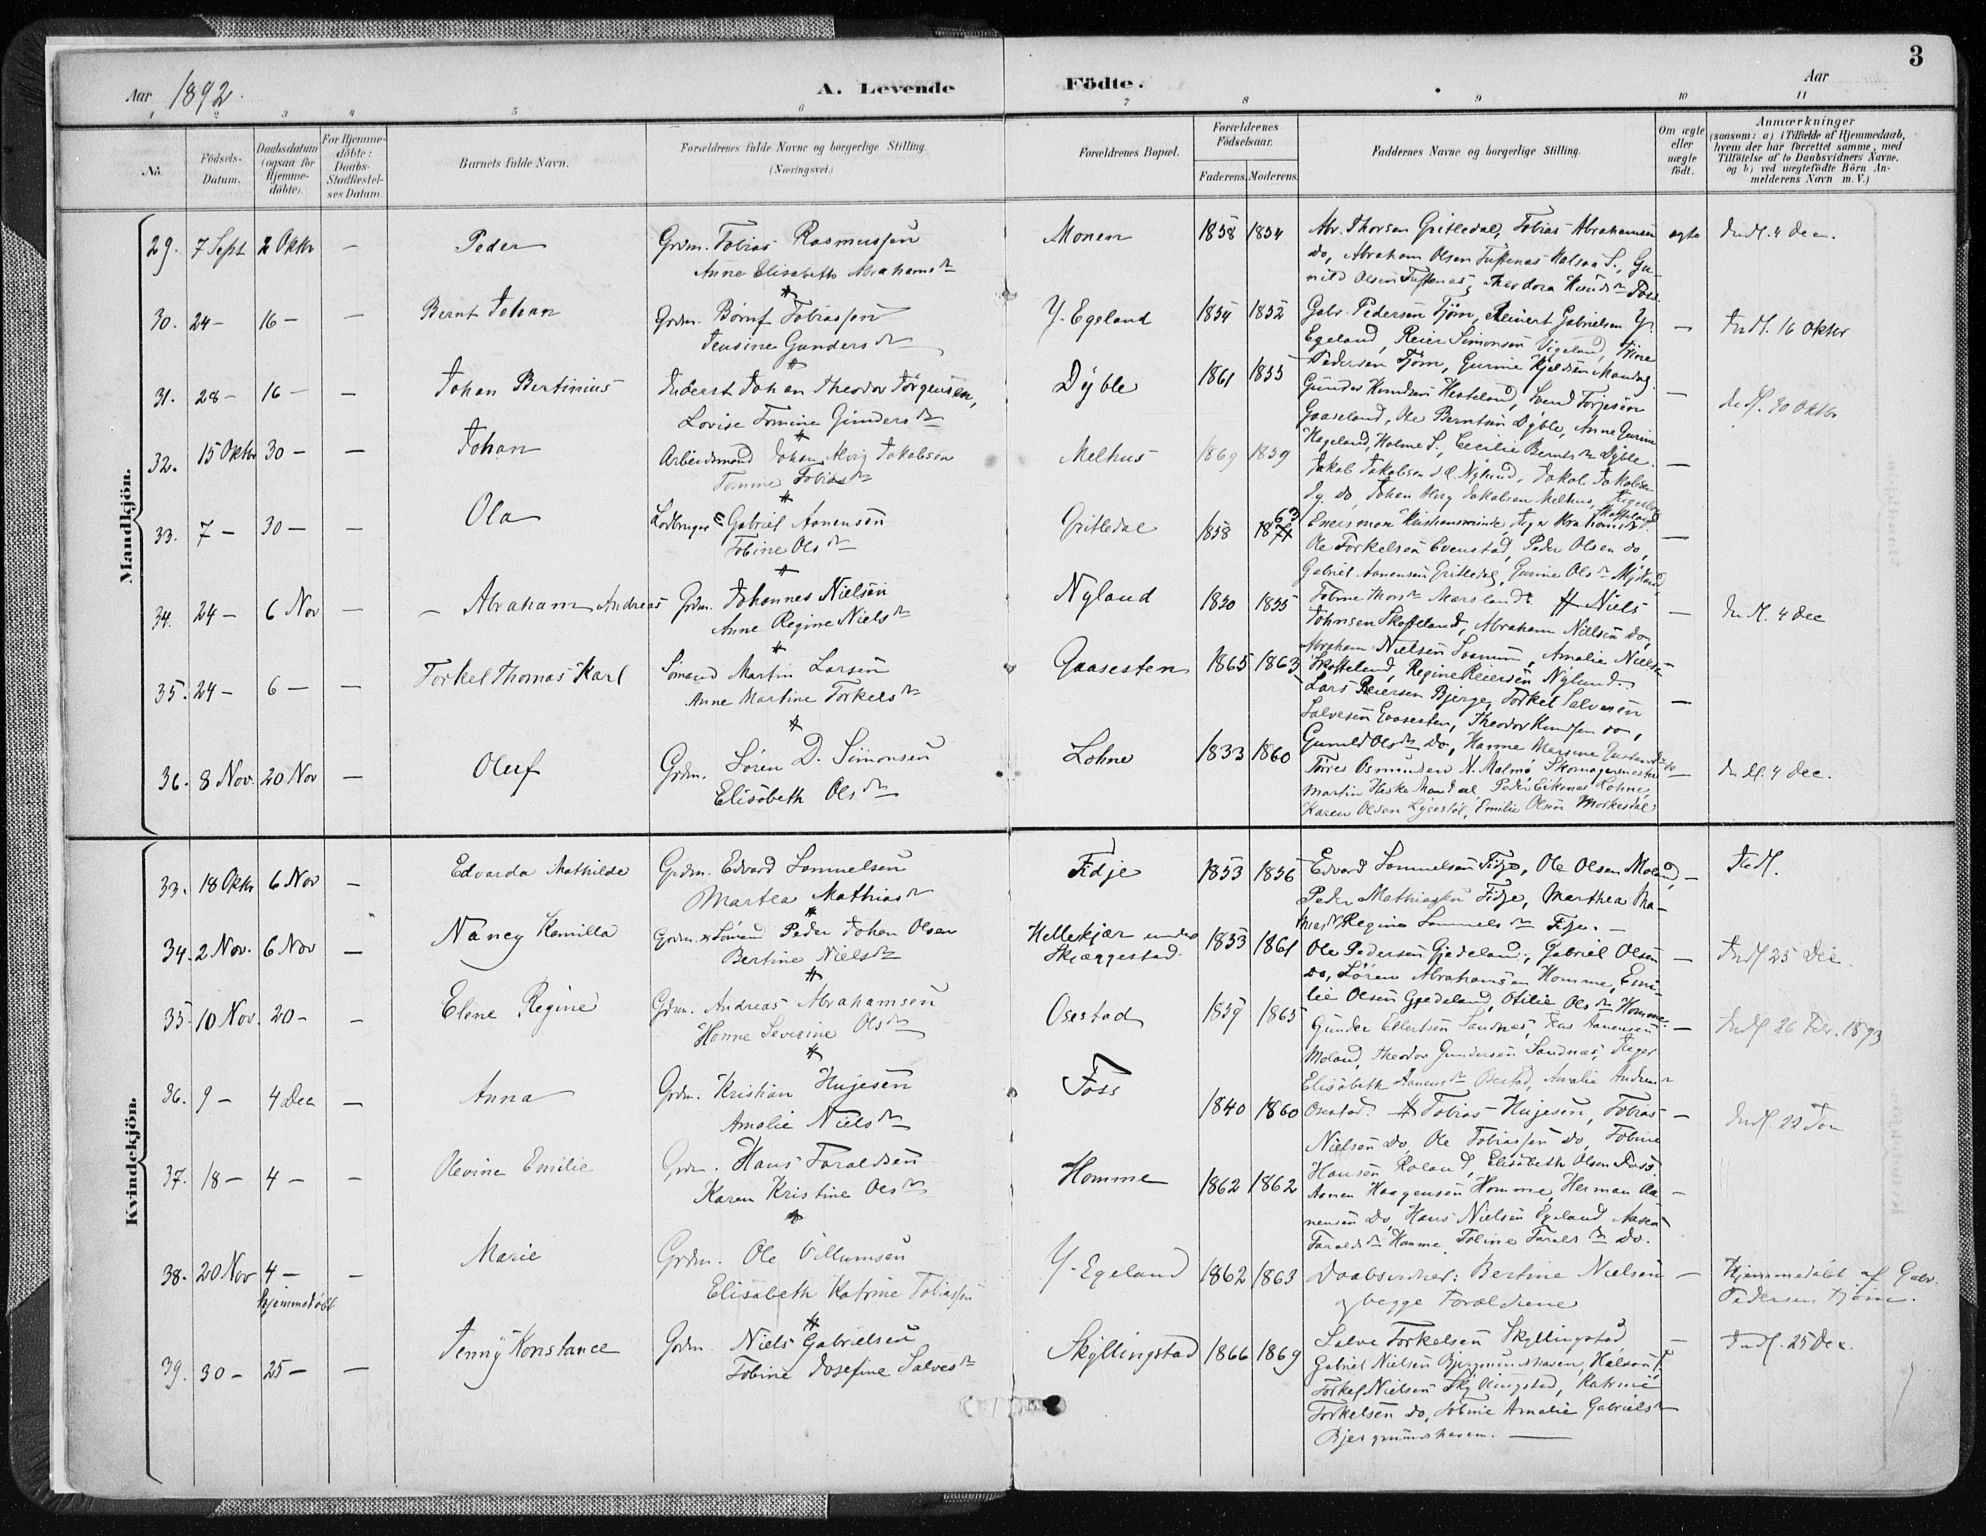 3
Aar 1892.
A. Levende Födte.
Aar
1 2 3 4 5 6 7 8 9 10 11
No.
Födsels-Datum.
Daabsdatum (ogsaa for Hjemme-döbte).
For Hjemme-döbte: Daabs Stadfæstel-ses Datum.
Barnets fulde Navn.
Forældrenes fulde Navne og borgerlige Stilling. (Næringsvei.)
Forældrenes Bopæl.
Forældrenes Födselsaar.
Faderens. Moderens.
Faddernes Navne og borgerlige Stilling.
Om ægte eller uægte födt.
Anmærkninger
(saasom: a) i Tilfælde af Hjemmedaab, hvem der har forrettet samme, med Tilföielse af to Daabsvidners Navne, og b) ved uægtefödte Börn Anmelderens Navn m. V.)
Mandkjön.
29. 7 Sept 2 Oktbr — Peder
Grdm. Tobias Rasmussen
Anne Elisabeth Abrahamsdtr
Monen 1858 1854
Abr. Thorsen Gritledal, Tobias Abrahamsen
do, Abraham Olsen Tuftenæs Halsaa S., Gu-
nild Olsen Tuftenæs, Theodora Knudsdtr Foss
ægte Indl. 4 Dec.
30. 24 — 16 — — Bernt Johan
Grdm. Börnt Tobiassen
Jensine Gundersdtr
Y. Egeland 1854 1852
Gabr. Pedersen Tjöm, Reinert Gabrielsen Y.
Egeland, Reier Simonsen Vigeland, Tine
Pedersen Tjöm, Gurine Kjeldsen Mandal.
— Indl. 16 Oktbr
31. 28 — 16 — — Johan Bertinius
Inderst Johan Theodor Jörgensen,
Lovise Tomine Gundersdtr
Dyble 1861 1855
Gunder Knudsen Hesteland, Svend Torjesen
Gaaseland, Ole Berntsen Dyble, Anne Gurine
Hageland, Holme S., Cecilie Berntsdtr Dyble.
— Indl. 30 Oktbr
32. 15 Oktbr 30 — — Johan
Arbeidsmand Johan Alvig Jakobsen
Tomine Tobiasdtr
Melhus 1869 1859
Jakob Jakobsen d.æ. Nylund, Jakob Jakobsen
d.y. do, Johan Alvig Jakobsen Melhus,
—
33. 7 — 30 — — Ola
Lodbruger Gabriel Aanensen
Tobine Olsdtr
Gritledal 1858 1863
Ole Torkelsen Evenstad, Peder Olsen do,
Gabriel Aanensen Gritledal, Gurine Olsdtr
—
34. 24 — 6 Nov — Abraham Andreas
Grdm. Johannes Nielsen
Anne Regine Nielsdtr
Nyland 1850 1855
Niels
Johnsen Skoffeland, Abraham Nielsen do,
Abraham Nielsen, Amalie Nielsen
Skoffeland, Regine Reiersen Nylund.
— Indl. 4 Dec
35. 24 — 6 — — Torkel Thomas Karl
Sömand Martin Larsen
Anne Martine Torkelsdtr
Gaasesten 1865 1863
Lars Reiersen Bjerge, Torkel Salvesen
Salvesen Gaasesten, Theodor Knudsen do,
Gunild Olsdtr do, Hanne
—
36. 8 Nov. 20 Nov — Oluf
Grdm. Sören D. Simonsen
Elisabeth Olsdtr
Lohne 1833 1860
Törres Osmundsen N. Malmö, Skomagermester
Martin Heske Mandal, Peder Eikenæs Lohne,
Karen Olsen Lycestöl, Emilie Olsen Morkestöl
— Indl. 4 Dec.
Kvindekjön.
33. 18 Oktbr 6 Nov — Edvarda Mathilde
Grdm. Edvard Samuelsen
Martea Mathiasdtr
Fidje 1853 1856
Edvard Samuelsen Fidje, Ole Olsen Moland,
Peder Mathiassen Fidje, Marthea Ma-
thiasdtr, Regine Samuelsdtr Fidje.
— Indl.
34. 2 Nov. 6 Nov — Nancy Kamilla
Grdm. & Sömand Peder Johan Olsen
Bertine Nielsdtr
Hellekjær under Skjæggestad 1853 1861
Ole Pedersen Gjedeland, Gabriel Olsen
do, Sören Abrahamsen Homme, Emi-
lie Olsen Gjedeland, Otilie Olsdtr Homme.
— Indl 25 Dec.
35. 10 Nov. 20 — — Elene Regine
Grdm. Andreas Abrahamsen
Hanne Severine Olsdtr
Osestad 1859 1865
Gunder Ellertsen Sandnæs, Aanensen
Moland, Theodor Gundersen Sandnæs, Inger
Elisabeth Aanensdtr Osestad, Amalie Andersdtr
Osestad.
— Indl 26 Febr. 1893
36. 9 — 4 Dec — Anna
Grdm. Kristian Hujesen
Amalie Nielsdtr
Foss 1840 1860
Tobias Hujesen, Tobias
Nielsen do, Ole Tobiassen do, Tobine
Hansen Roland, Elisabeth Olsen Foss.
— Indl. 22 Jan
37. 18 — 4 — — Olevine Emilie
Grdm. Hans Taraldsen
Karen Kristine Olsdtr
Homme 1862 1862
Aanen Haagensen Homme, Herman Aa-
nensen do, Hans Nielsen Egeland, Aasea
Taraldsdtr Homme, Tobine Taraldsdtr do.
—
38. 20 Nov 4 — — Marie
hjemmedöbt
Grdm. Ole Villumsen
Elisabeth Katrine Tobiassen
Y. Egeland 1862 1863
Daabsvidner: Bertine Nielsen
og begge Forældrene
— Hjemmedöbt af Gabr.
Pedersen Tjöm.
39. 30 — 25 — — Jenny Konstance
Grdm. Niels Gabrielsen
Tobine Josefine Salvesdtr
Skyllingstad 1866 1869
Salve Torkelsen Skyllingstad,
Gabriel Nielsen Bjergmundshavn, Halsaa S.
Torkel Nielsen Skyllingstad, Katrine
Torkelsen do, Tobine Amalie Gabrielsdtr
Bjergmundshavn.
— Indl. 25 Dec.